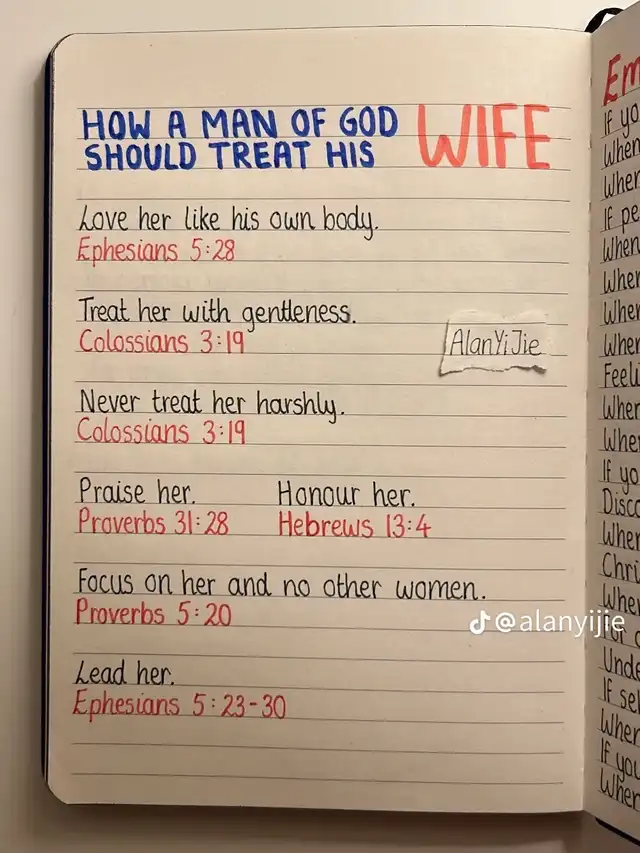 HOW A MAN OF GOD
SHOULD TREAT HIS WIFE
Love her like his own body.
Ephesians 5:28
Treat her with gentleness.
Colossians 3:19
AlanYiJie
Never treat her harshly.
Colossians 3:19
Praise her. Honour her.
Proverbs 31:28 Hebrews 13:4
Focus on her and no other women.
Proverbs 5:20
@alanyijie
Lead her.
Ephesians 5:23-30
If
When
When
If
When
When
When
When
When
When
If
When
When
If
When
If you
When